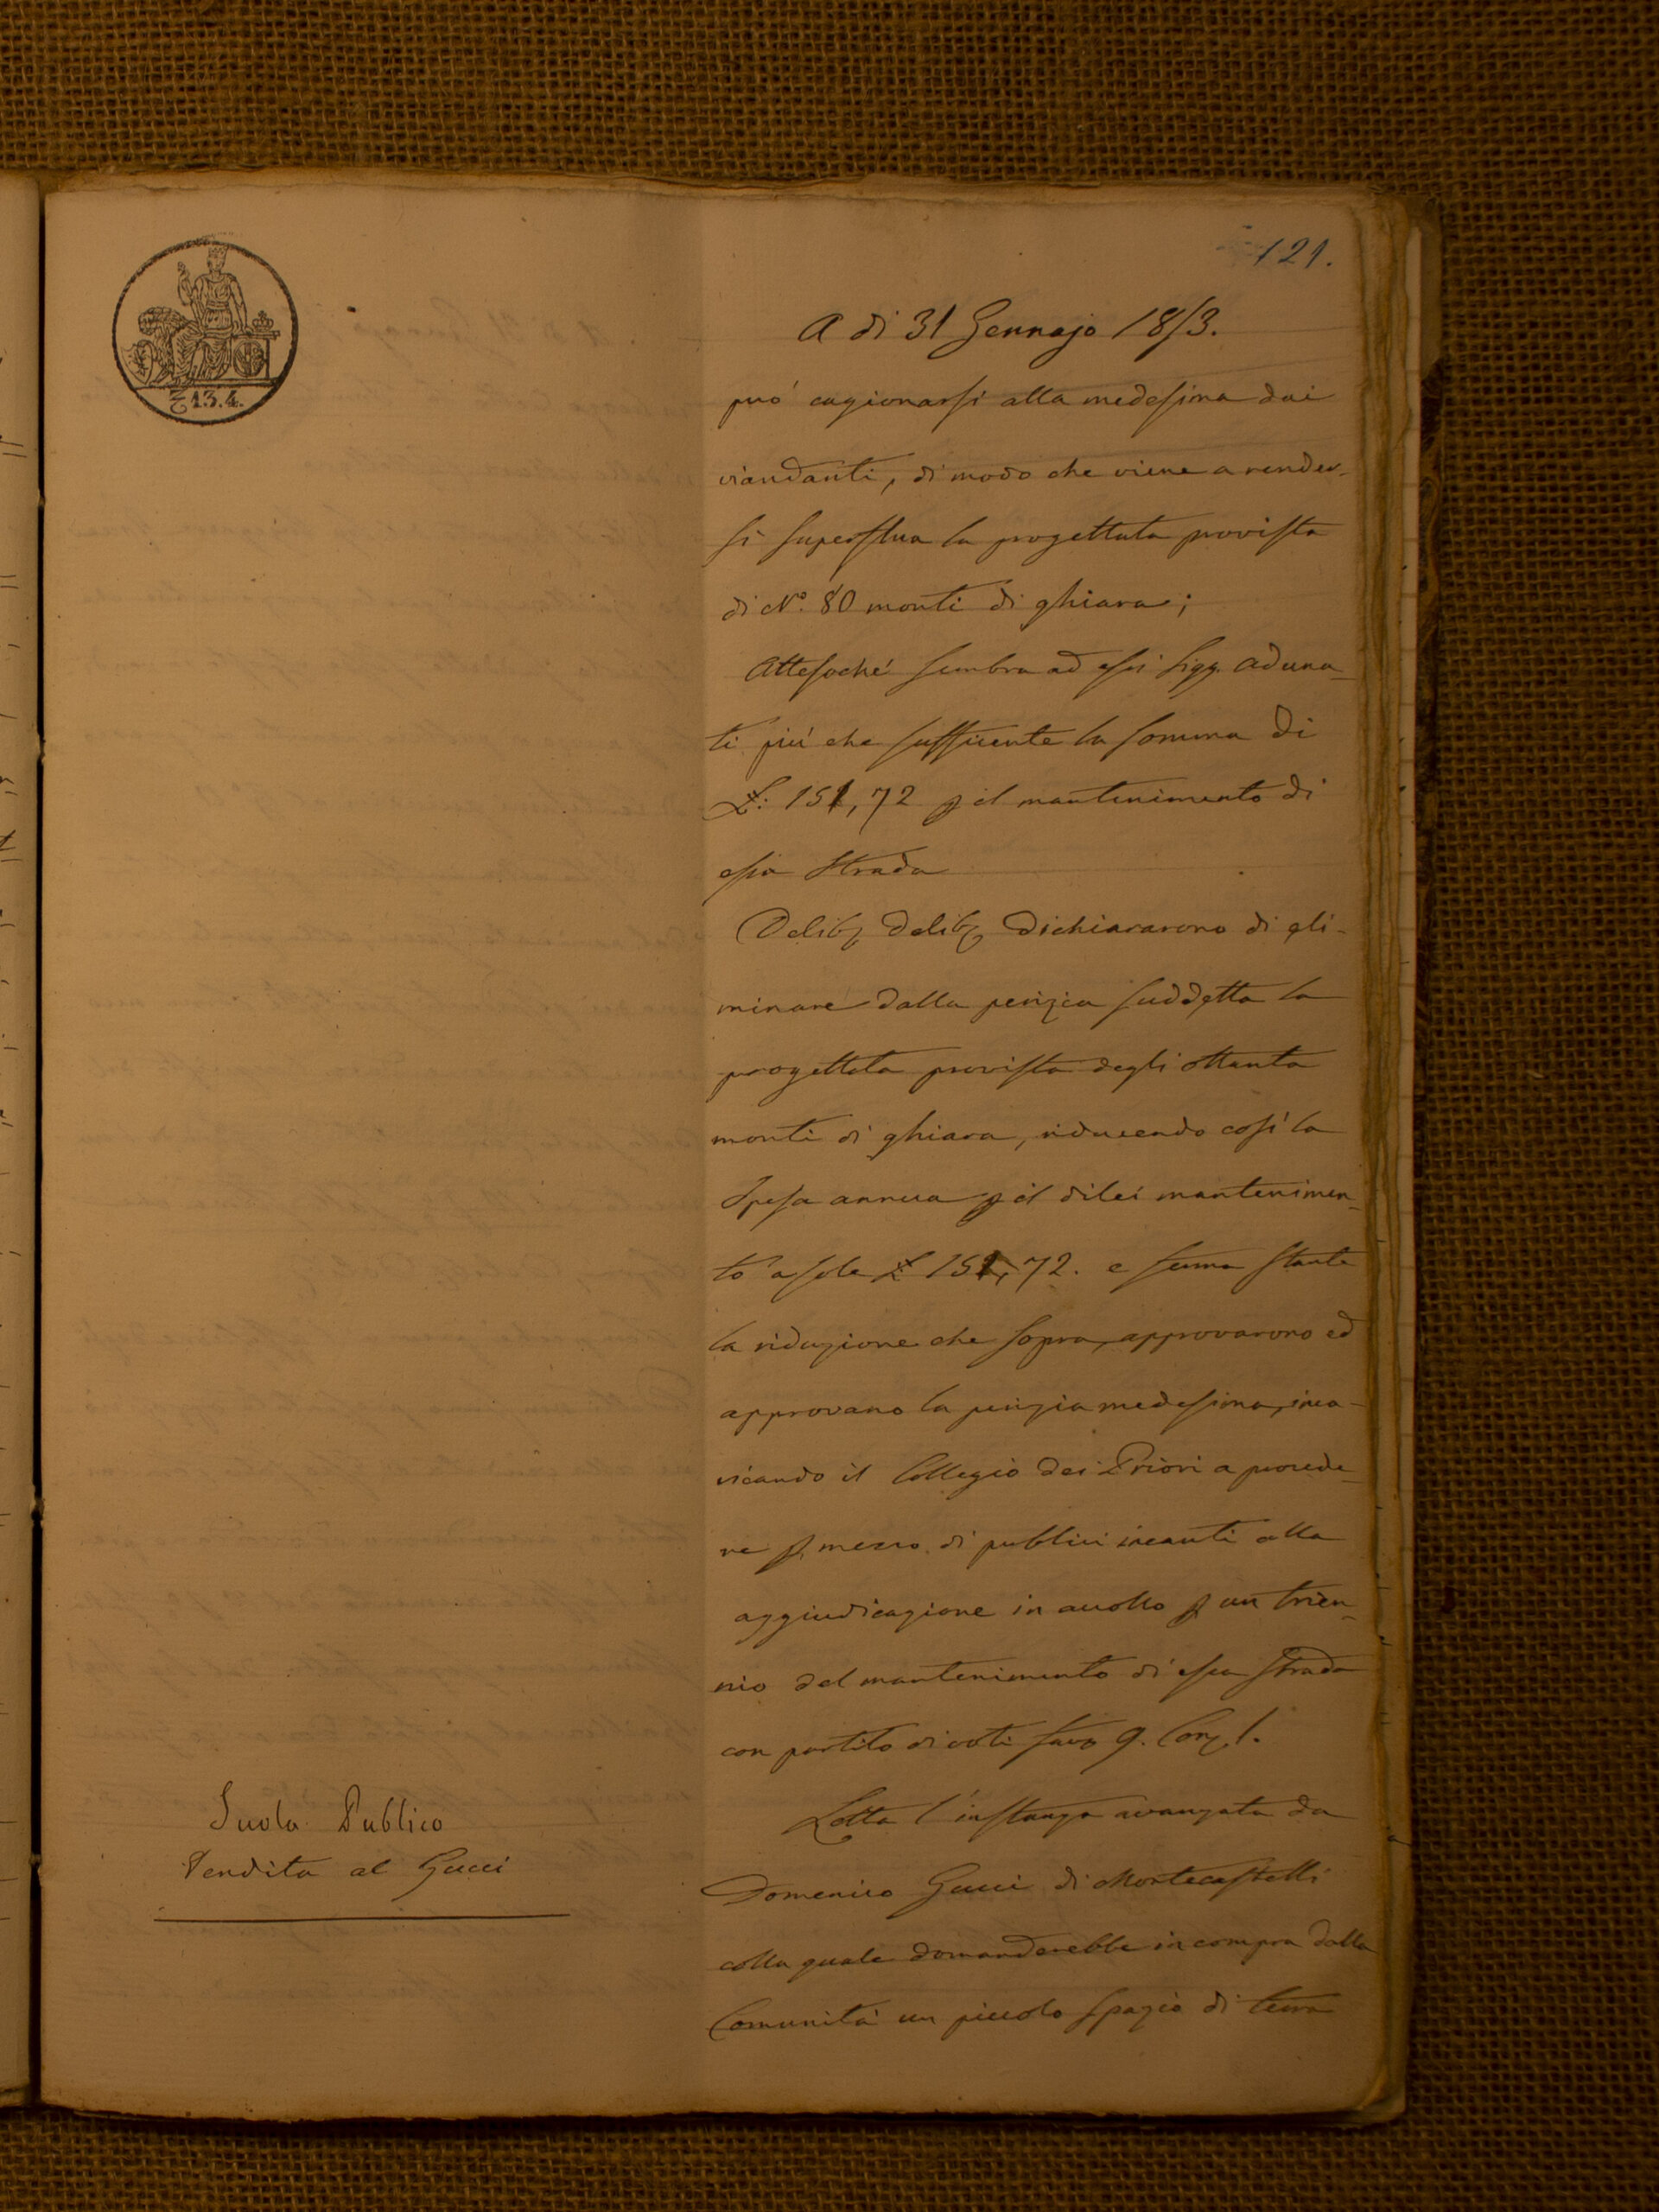 121.
13.4.
A di 31 Gennajo 1853.
può cagionarsi alla medesima dai
viandanti, di modo che viene a render-
si superflua la progettata provista
di N.° 80 monti di ghiara;
Attesochè sembra ad essi Sigg. Aduna-
ti più che sufficiente la somma di
£: 151,72 p il mantenimento di
essa Strada
Delib. Delib. Dichiararono di eli-
minare dalla perizia suddetta la
progettata provista degli ottanta
monti di ghiara, riducendo così la
Spesa annua p il dilei mantenimen-
to a sole £ 151,72. e ferma stante
la riduzione che sopra, approvarono ed
approvano la perizia medesima, inca-
ricando il Collegio dei Priori a procede-
re p mezzo di publici incanti alla
aggiudicazione in accollo p un trien-
nio del mantenimento di essa Strada
con partito di voti favo 9. Con. 1.
Suola Publico
Vendita al Gucci
Letta l'instanza avanzata da
Domenico Gucci di Montecastelli
colla quale domanderebbe in compra dalla
Comunità un piccolo spazio di terra